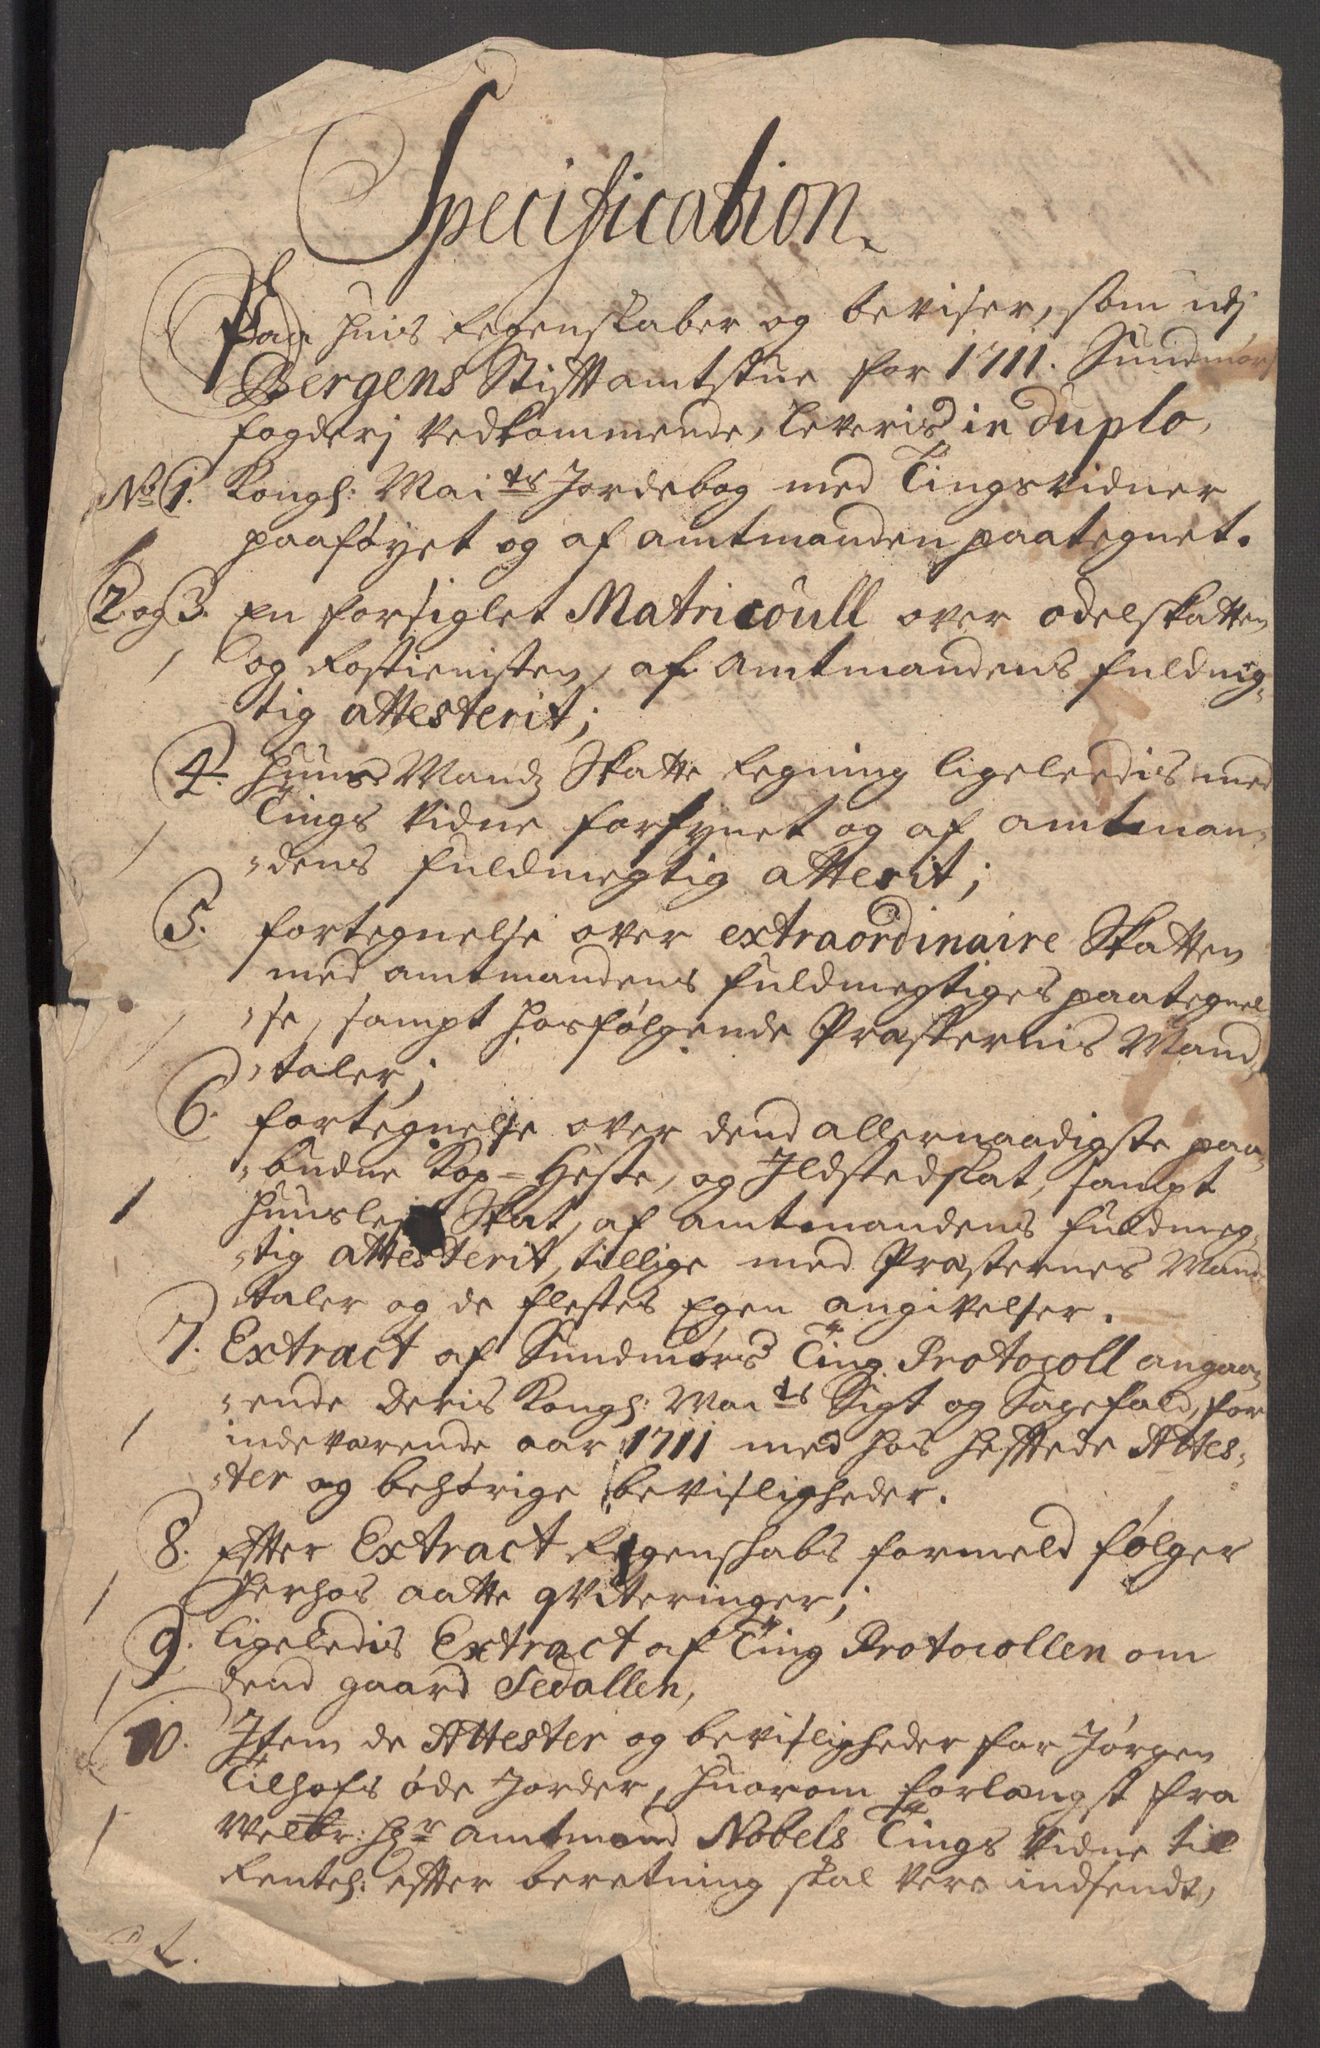 Specification
Paa huis Regenskaber og beviser, som udj
Bergens Stifftamtstue for 1711. Sundmørs
fogderj vedkommende, leveris in duplo,
No 1. Kongl: Maits Jordebog med Tingsvidner
paaføyet og af amtmanden paategnet.
2 og 3. En forsiglet Matricoull over odelskatten
og Rostienisten, af amtmandens fuldmeg-
tig attesterit;
4. Huus Mandz Skatte Regning ligeledis med
Tings vidne forsynet og af amtman-
dens fuldmegtig atterit;
5. fortegnelse over extraordinaire Skatten
med amtmandens fuldmegtiges paategnel
se, sampt hosfølgende Præsternis Mand
taler;
6. fortegnelse over dend allernaadigste paa
budne Kop- Heste, og Ildstedskat, sampt
Huusleje Skat, af amtmandens fuldmeg-
tig attesterit, tillige med Præsternes Mand
taler og de flestes Egen angivelser.
7. Extract af Sundmørs Ting Protocoll angaa
ende deris Kongl: Maits Sigt og Sagefald, for
indeværende aar 1711 med hos hefftede Attes-
ter og behørige bevisligheder.
8. Effter Extract Regenskabs formeld følger
herhos aatte qviteringer;
9. ligeledis Extract af Ting Protocollen om
dend gaard Sedallen,
10. Item de Attester og bevisligheder for Jørgen
Tilhofs øde Jorder, huorom forlængst fra
Welbr: Hr amtmand Nobels Tings vidne till
Rentek: effter beretning skal vere indsendt,